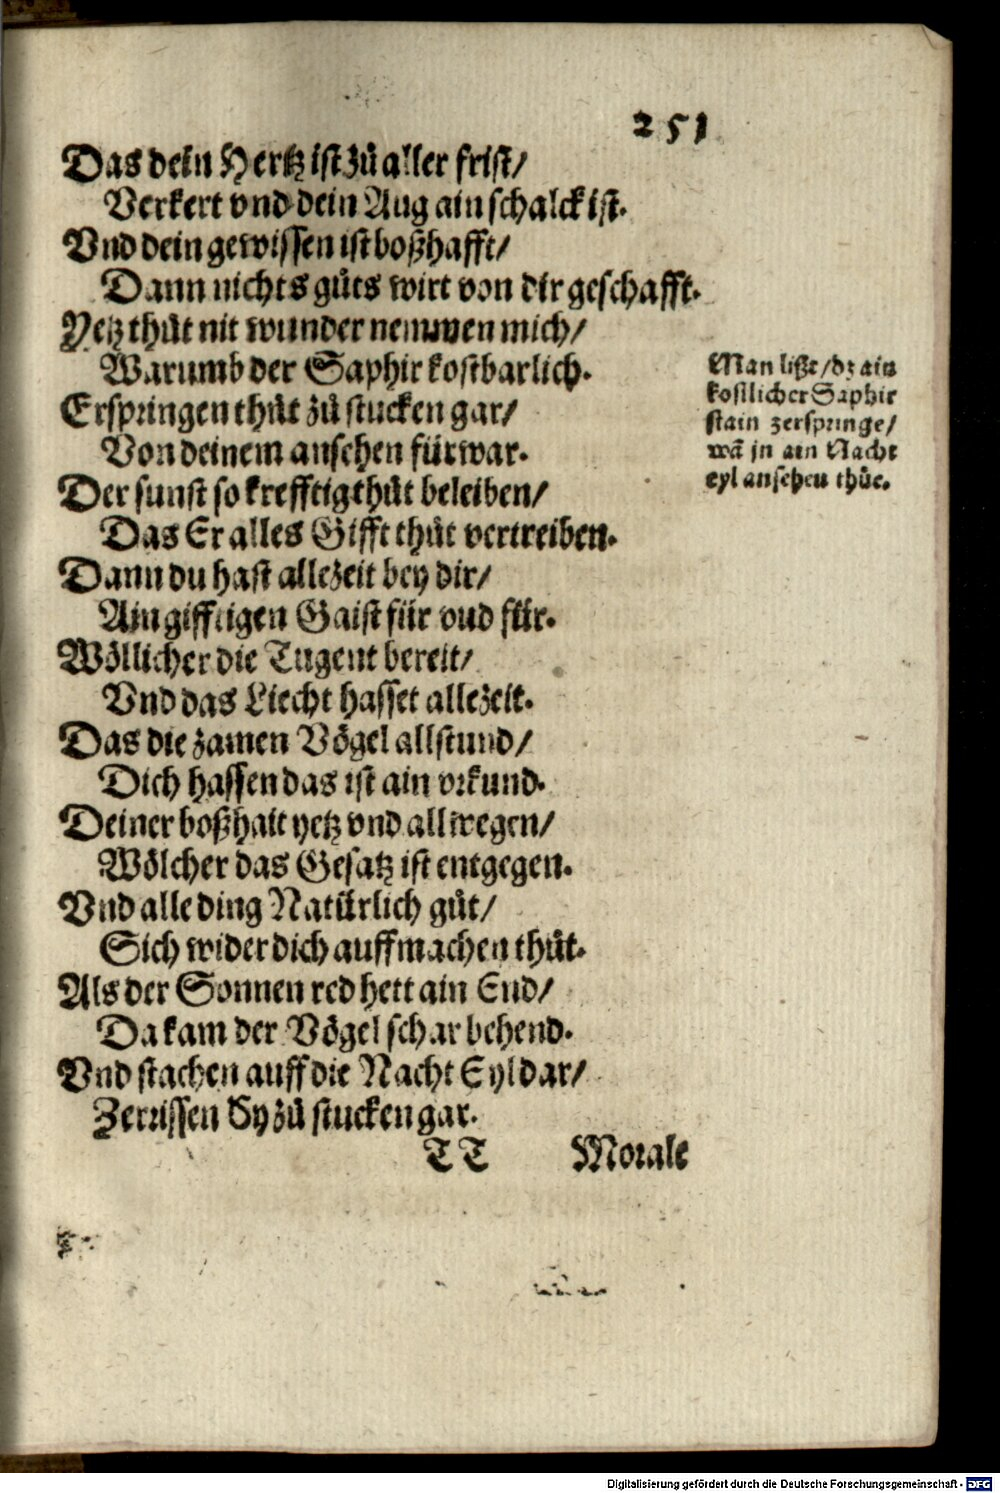 251
Das dein Hertz ist zů aller frist/
Verkert vnd dein Aug ain schalck ist.
Vnd dein gewissen ist boßhafft/
Dann nichts gůts wirt von dir geschafft.
Yetz thůt nit wunder nemmen mich/
Warumb der Saphir kostbarlich.
Erspringen thůt zů stucken gar/
Von deinem ansehen fürwar.
Der sunst so krefftig thůt beleiben/
Das Er alles Gifft thůt vertreiben.
Dann du hast allezeit bey dir/
Ain gifftigen Gaist für vnd für.
Wöllicher die Tugent bereit/
Vnd das Liecht hasset allezeit.
Das die zamen Vögel allstund/
Dich hassen das ist ain vrkund.
Deiner boßhait yetz vnd allwegen/
Wölcher das Gesatz ist entgegen.
Vnd alle ding Natürlich gůt/
Sich wider dich auffmachen thůt.
Als der Sonnen red hett ain End/
Da kam der Vögel schar behend.
Vnd stachen auff die Nacht Eyl dar/
Zerrissen Sy zů stucken gar.
Man lißt/dz ain
kostlicher Saphir
stain zerspringe/
wã jn ain Nacht
eyl ansehen thüe.
TT Morale
Digitalisierung gefördert durch die Deutsche Forschungsgemeinschaft - DFG